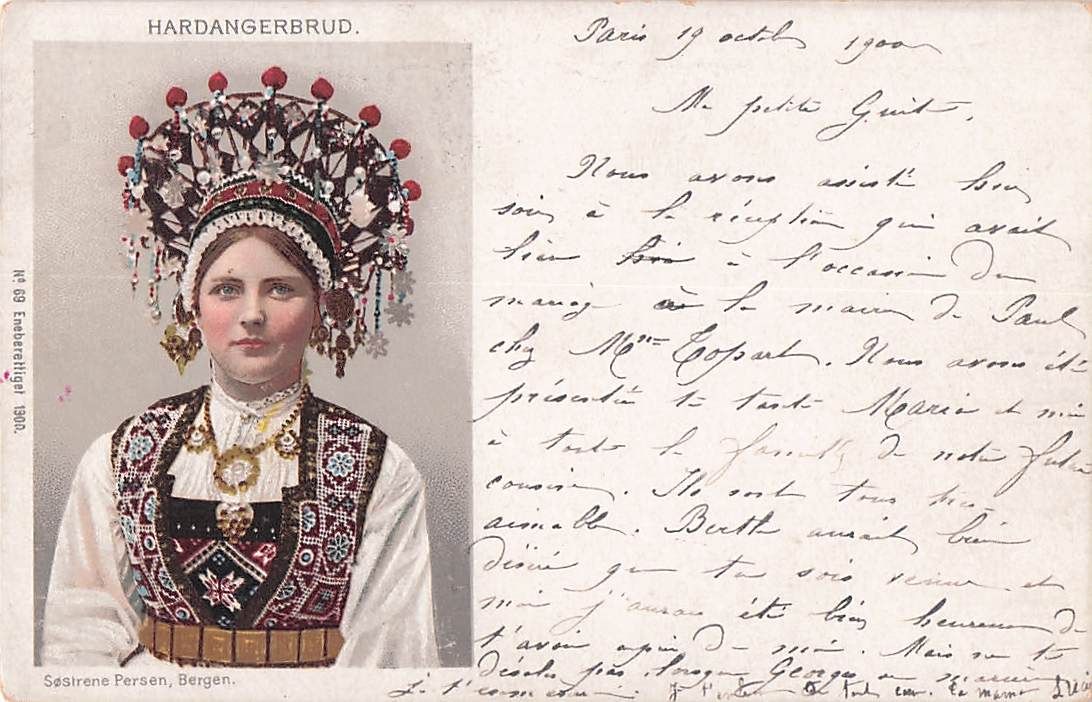 HARDANGERBRUD.
No 69 Eneberettiget 1900.
Søstrene Persen, Bergen.
Paris 19 octob 1900
Ma petite
Nous avons assisté hier
soir à la réception qui avait
lieu à l'occasion du
mariage à la mairie de Paul
chez Mme Topart. Nous avons été
présentés ta tante Maria et moi
à toute la famille de notre future
cousine. Ils sont tous très
aimable. Berthe aurait bien
désiré que tu sois venue et
moi j'aurais été bien heureuse de
t'avoir auprès de moi. Mais ne te
désoles pas, lorsque Georges se mariera
Je t'embrasse de tout cœur. ta maman